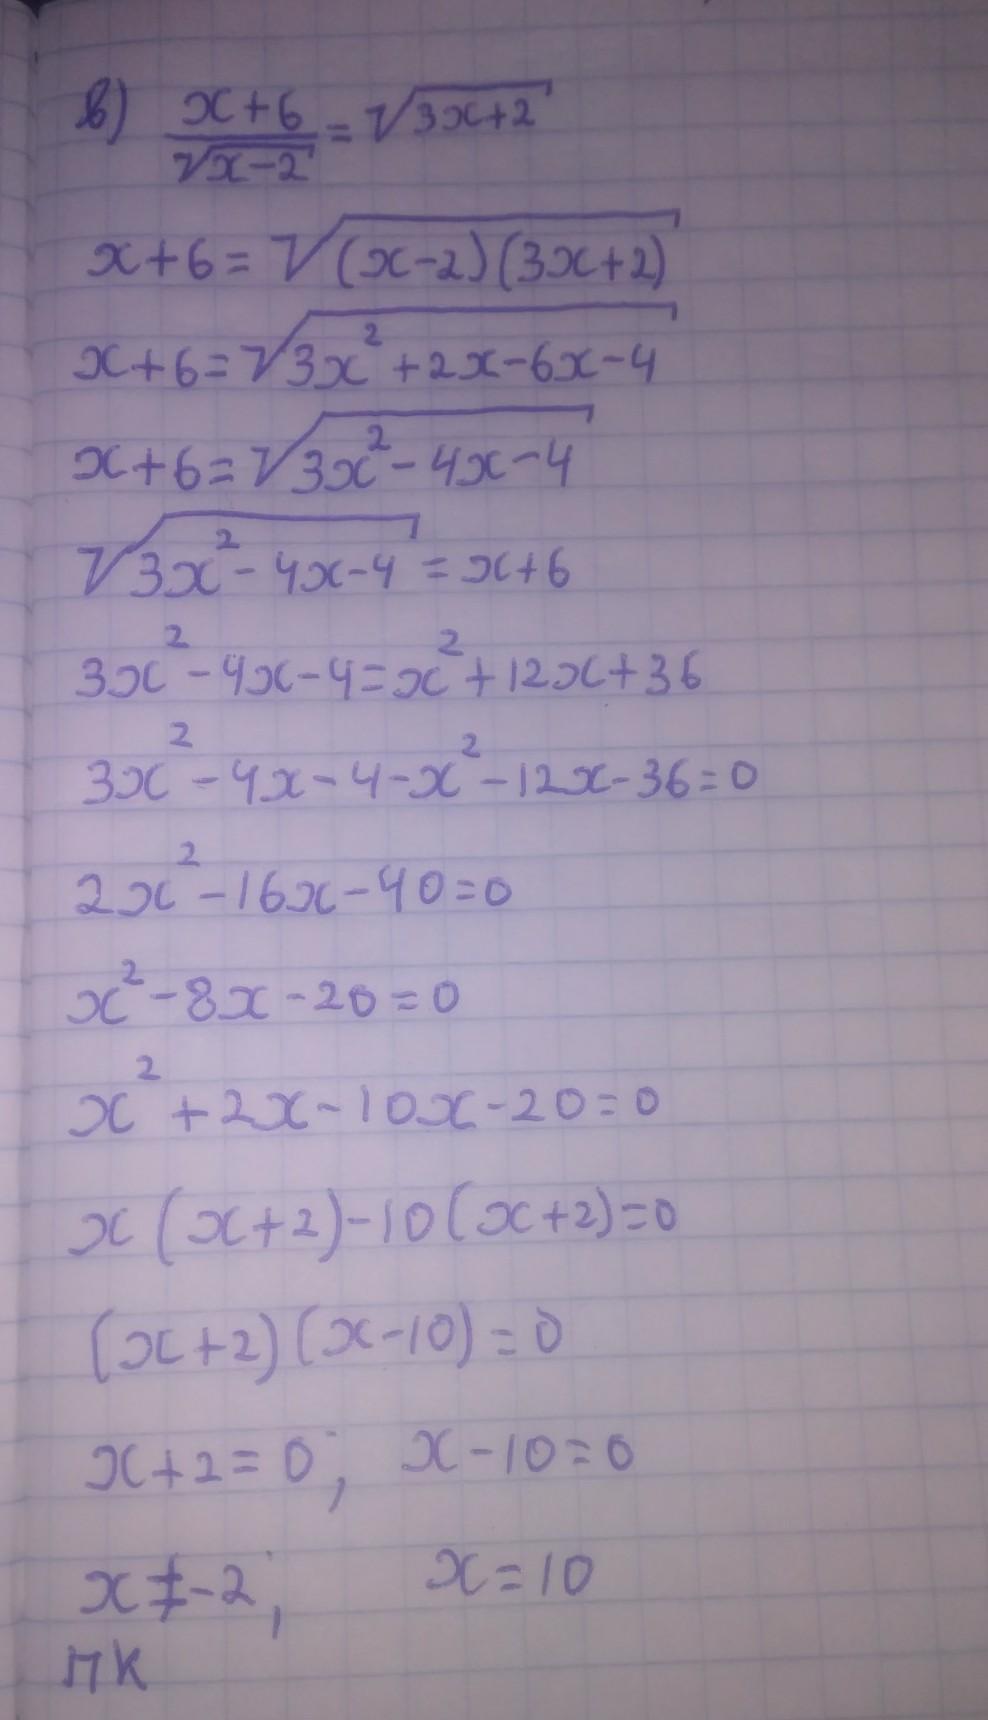 в) x+6/√x-2 = √3x+2
x+6=√(x-2)(3x+2)
x+6=√3x²+2x-6x-4
x+6=√3x²-4x-4
√3x²-4x-4=x+6
3x²-4x-4=x²+12x+36
3x²-4x-4-x²-12x-36=0
2x²-16x-40=0
x²-8x-20=0
x²+2x-10x-20=0
x(x+2)-10(x+2)=0
(x+2)(x-10)=0
x+2=0; x-10=0
x≠-2; x=10
ПК